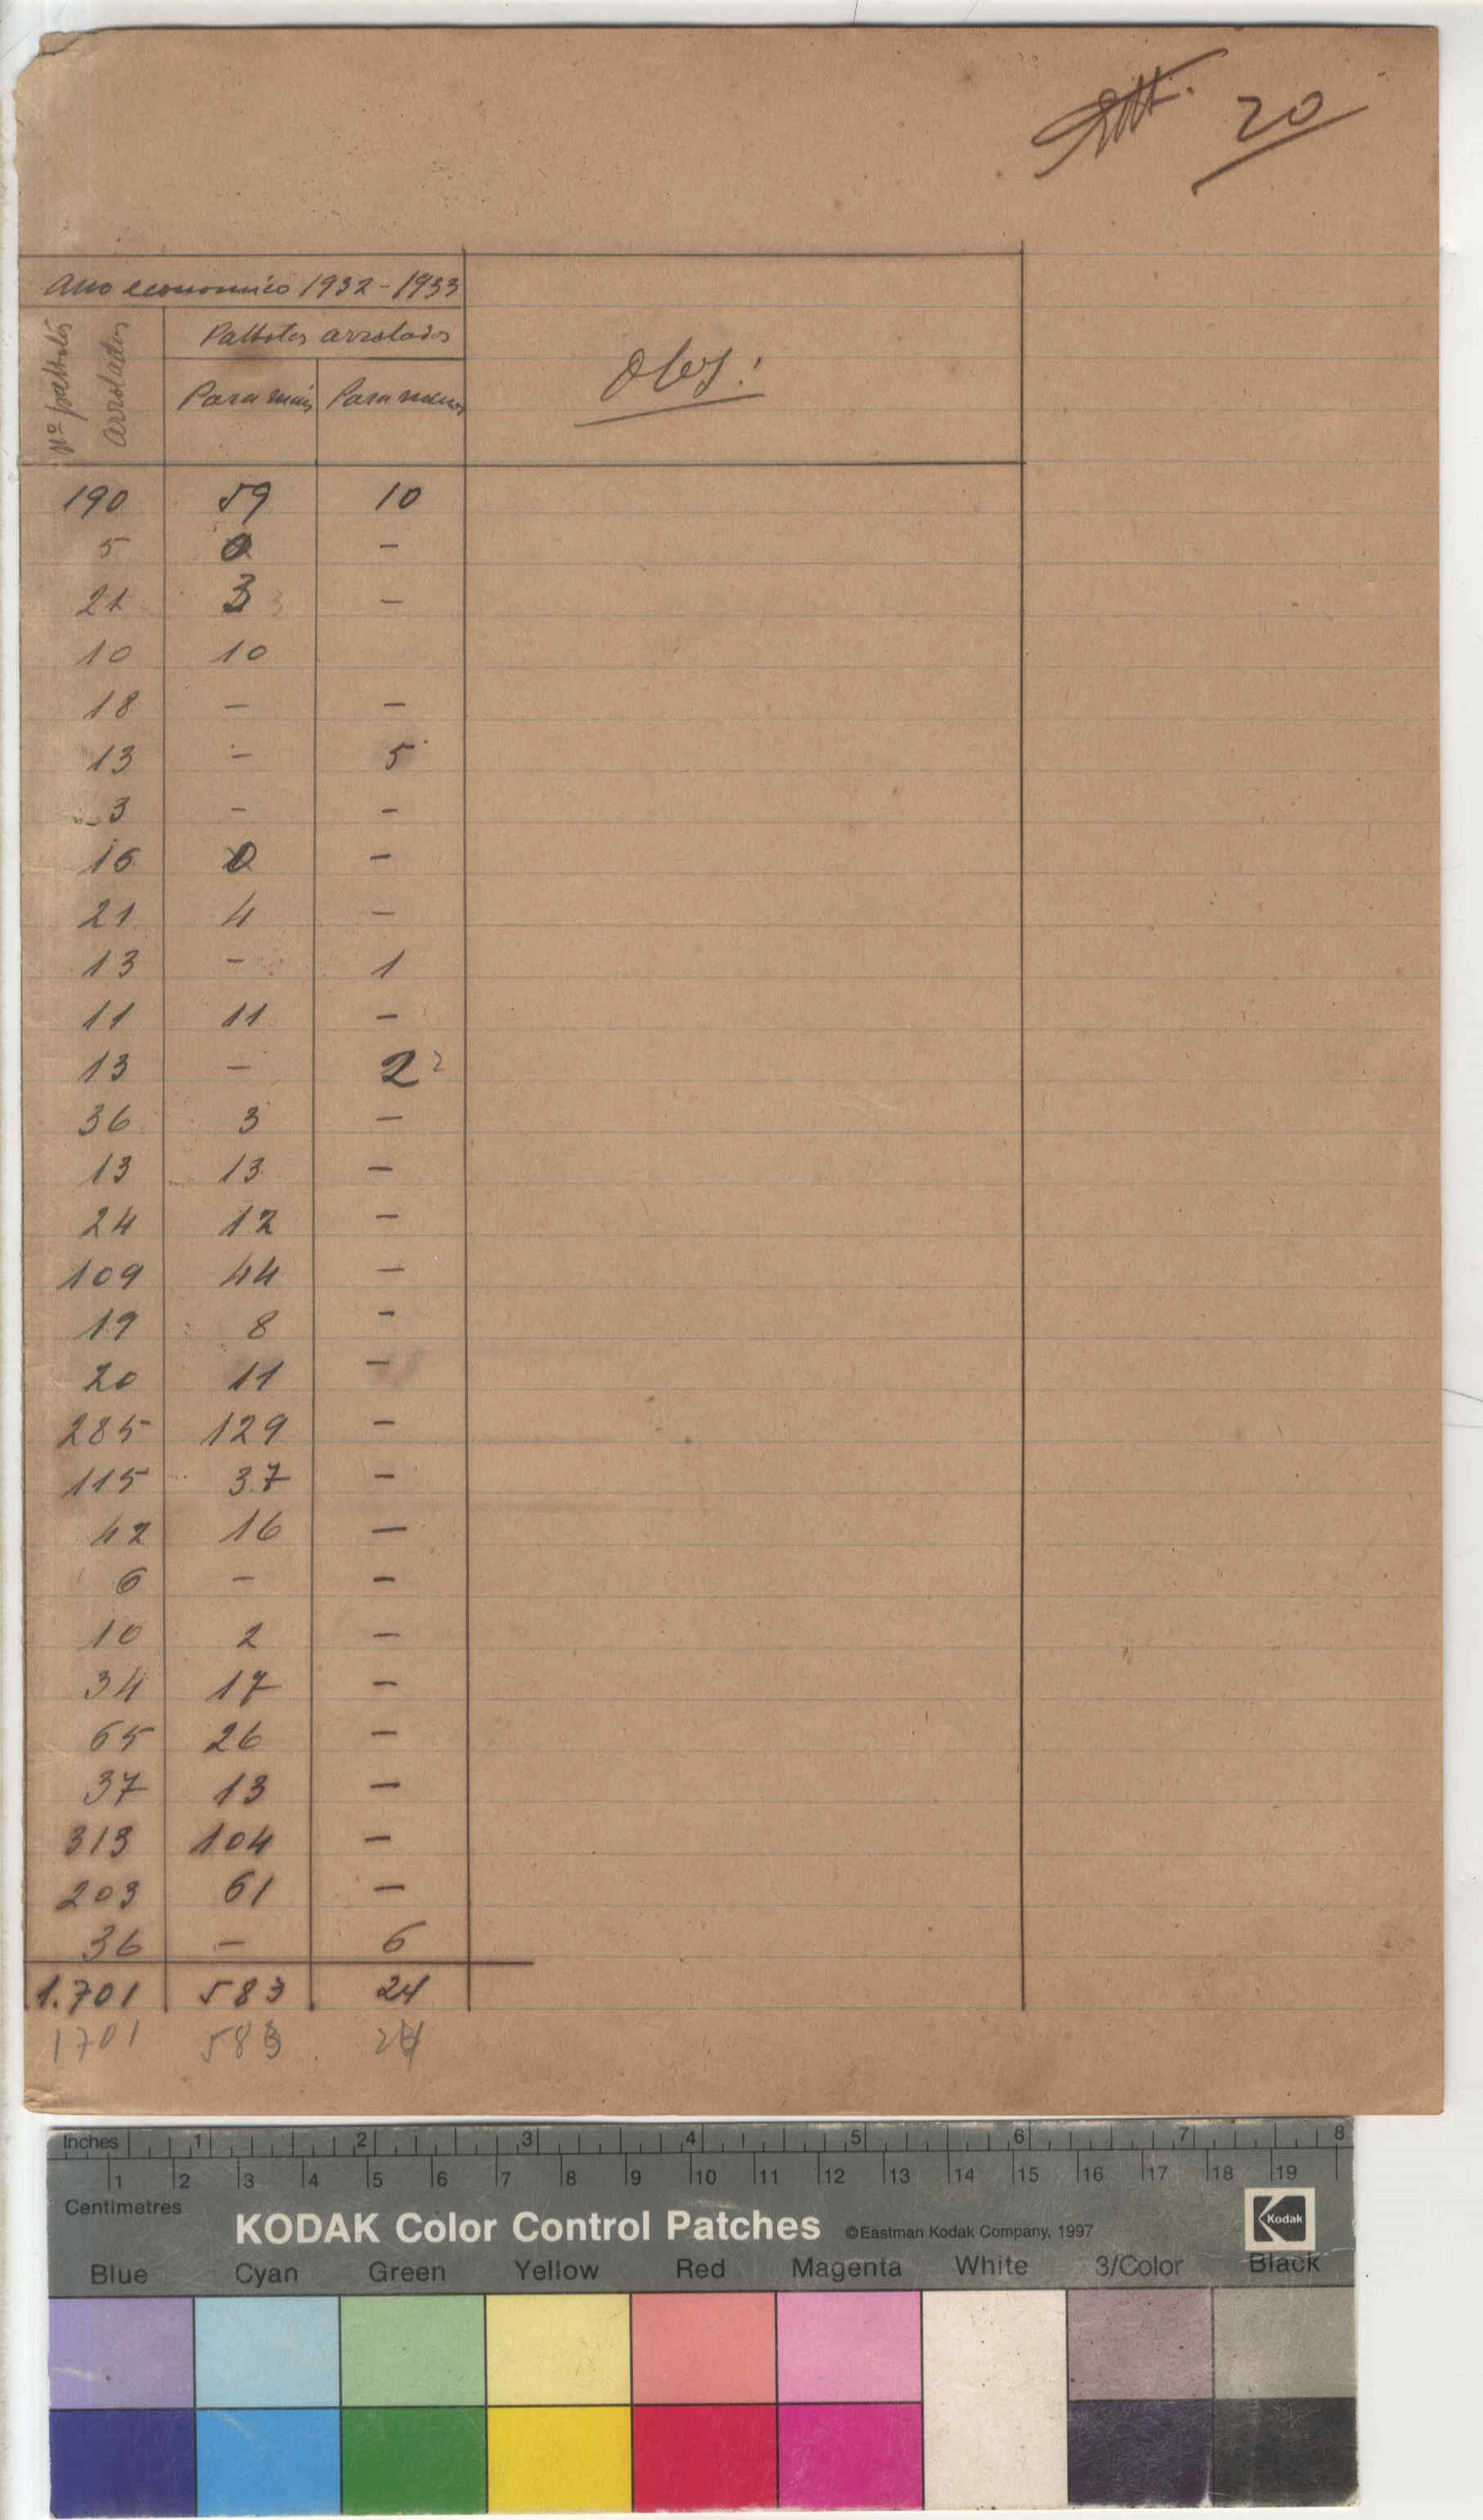 20
Ano economico 1932-1933
Nº palhotas arroladas
Palhotas arroladas
Para mais
Para menos
Obs:
190 59 10
5 0 -
21 3 3 -
10 10
18 - -
13 - 5
3 - -
16 0 -
21 4 -
13 - 1
11 11 -
13 - 2 2
36 3 -
13 13 -
24 12 -
109 44 -
19 8 -
20 11 -
285 129 -
115 37 -
42 16 -
6 - -
10 2 -
34 17 -
65 26 -
37 13 -
313 104 -
203 61 -
36 - 6
1.701 583 24
1701 583 24
Inches 1 2 3 4 5 6 7 8
1 2 3 4 5 6 7 8 9 10 11 12 13 14 15 16 17 18 19
Centimetres
KODAK Color Control Patches ©Eastman Kodak Company, 1997 Kodak
Blue Cyan Green Yellow Red Magenta White 3/Color Black